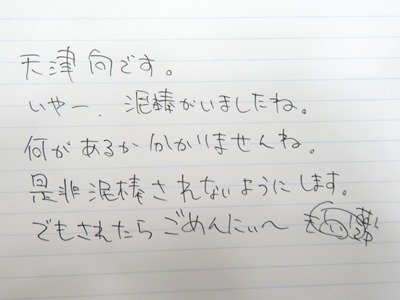 天津 向です。
いやー、泥棒がいましたね。
何があるか分かりませんね。
是非泥棒されないようにします。
でもされたら ごめんにぃ〜